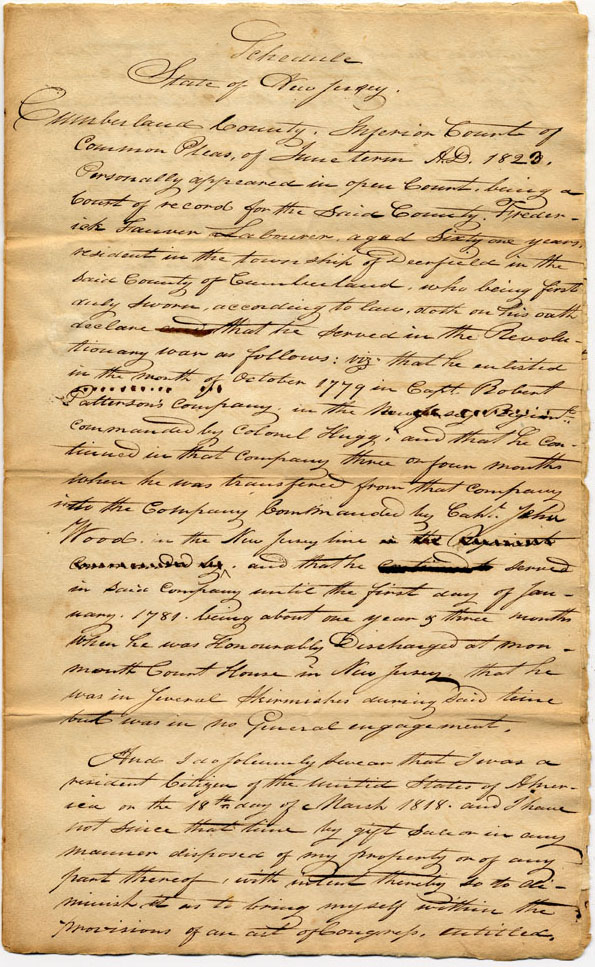 Schedule
State of New Jersey.
Cumberland County. Inferior Court of
Common Pleas, of June term A.D. 1823.
Personally appeared in open Court, being a
Court of record for the Said County. Freder-
ick Sauver Labourer, aged Sixty one years,
resident in the township of Deerfield in the
said County of Cumberland, who being first
duly sworn, according to law, doth on his oath
declare and that he served in the Revolu-
tionary war as follows: viz. that he enlisted
in the month of October 1779 in Capt. Robert
Patterson's Company, in the
commanded by Colonel Hugg; and that he con-
tinued in that company three or four months
when he was transfered from that company
into the Company Commanded by Capt. John
Wood. in the New Jersey line in the Regiment
commanded by. and that he continued to served
in said Company until the first day of Jan-
uary. 1781. being about one year & three months
when he was Honourably Discharged at mon-
mouth Court House in New Jersey, that he
was in several Skirmishes during said time
but was in no General engagement.
And I do solemnly swear that I was a
resident Citizen of the United States of Amer-
ica on the 18th day of March 1818. and I have
not since that time by gift sale or in any
manner disposed of my property or of any
part thereof, with intent thereby so to di-
minish it as to bring myself within the
provisions of an act of Congress, entitled,